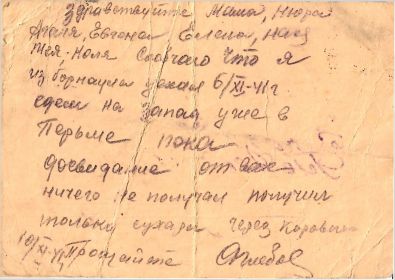 Здравствуйте Мама, Нюра
Евгения Елена,
Коля Сообчаю что я
из борнаула уехал 6/XI-41г
едем на запад уже в
Перьме пока
досвидание от вас
ничего не получал получил
только сухари через
10/XI-41г Прощайте